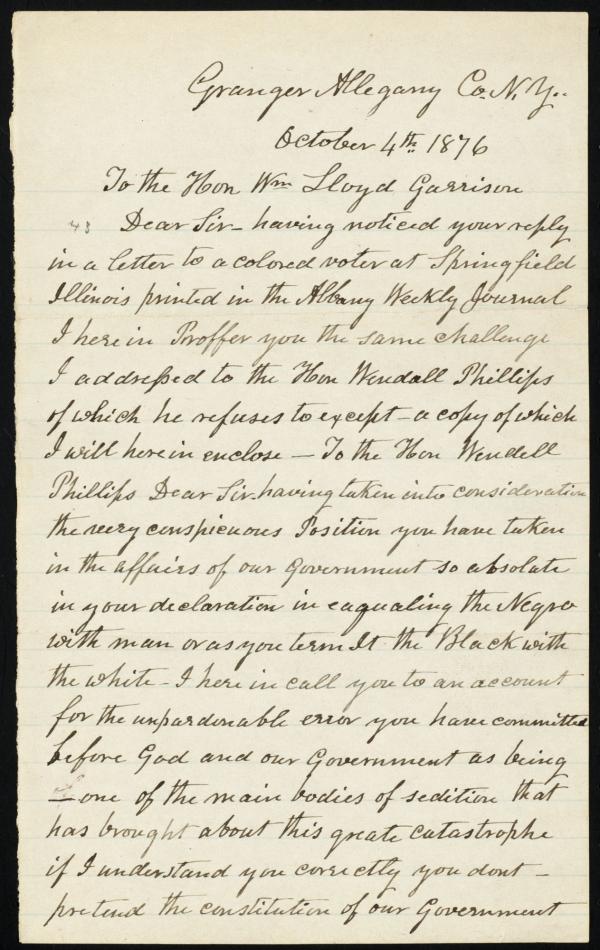 Granger Allegany Co. N. Y..
October 4th 1876
To the Hon Wm Lloyd Garrison
43 Dear Sir - having noticed your reply
in a letter to a colored voter at Springfield
Illinois printed in the Albany Weekly Journal
I herein Proffer you the same challenge
I addressed to the Hon Wendall Phillips
of which he refuses to except - a copy of which
I will herein enclose - To the Hon Wendell
Phillips Dear Sir - having taken into consideration
the very conspicuous Position you have taken
in the affairs of our Government so absolute
in your declaration in eaqualing the Negro
with man or as you term It the Black with
the white - I here in call you to an account
for the unpardonable error you have committed
before God and our Government as being
- one of the main bodies of sedition that
has brought about this greate catastrophe
if I understand you correctly you dont -
pretend the constitution of our Government